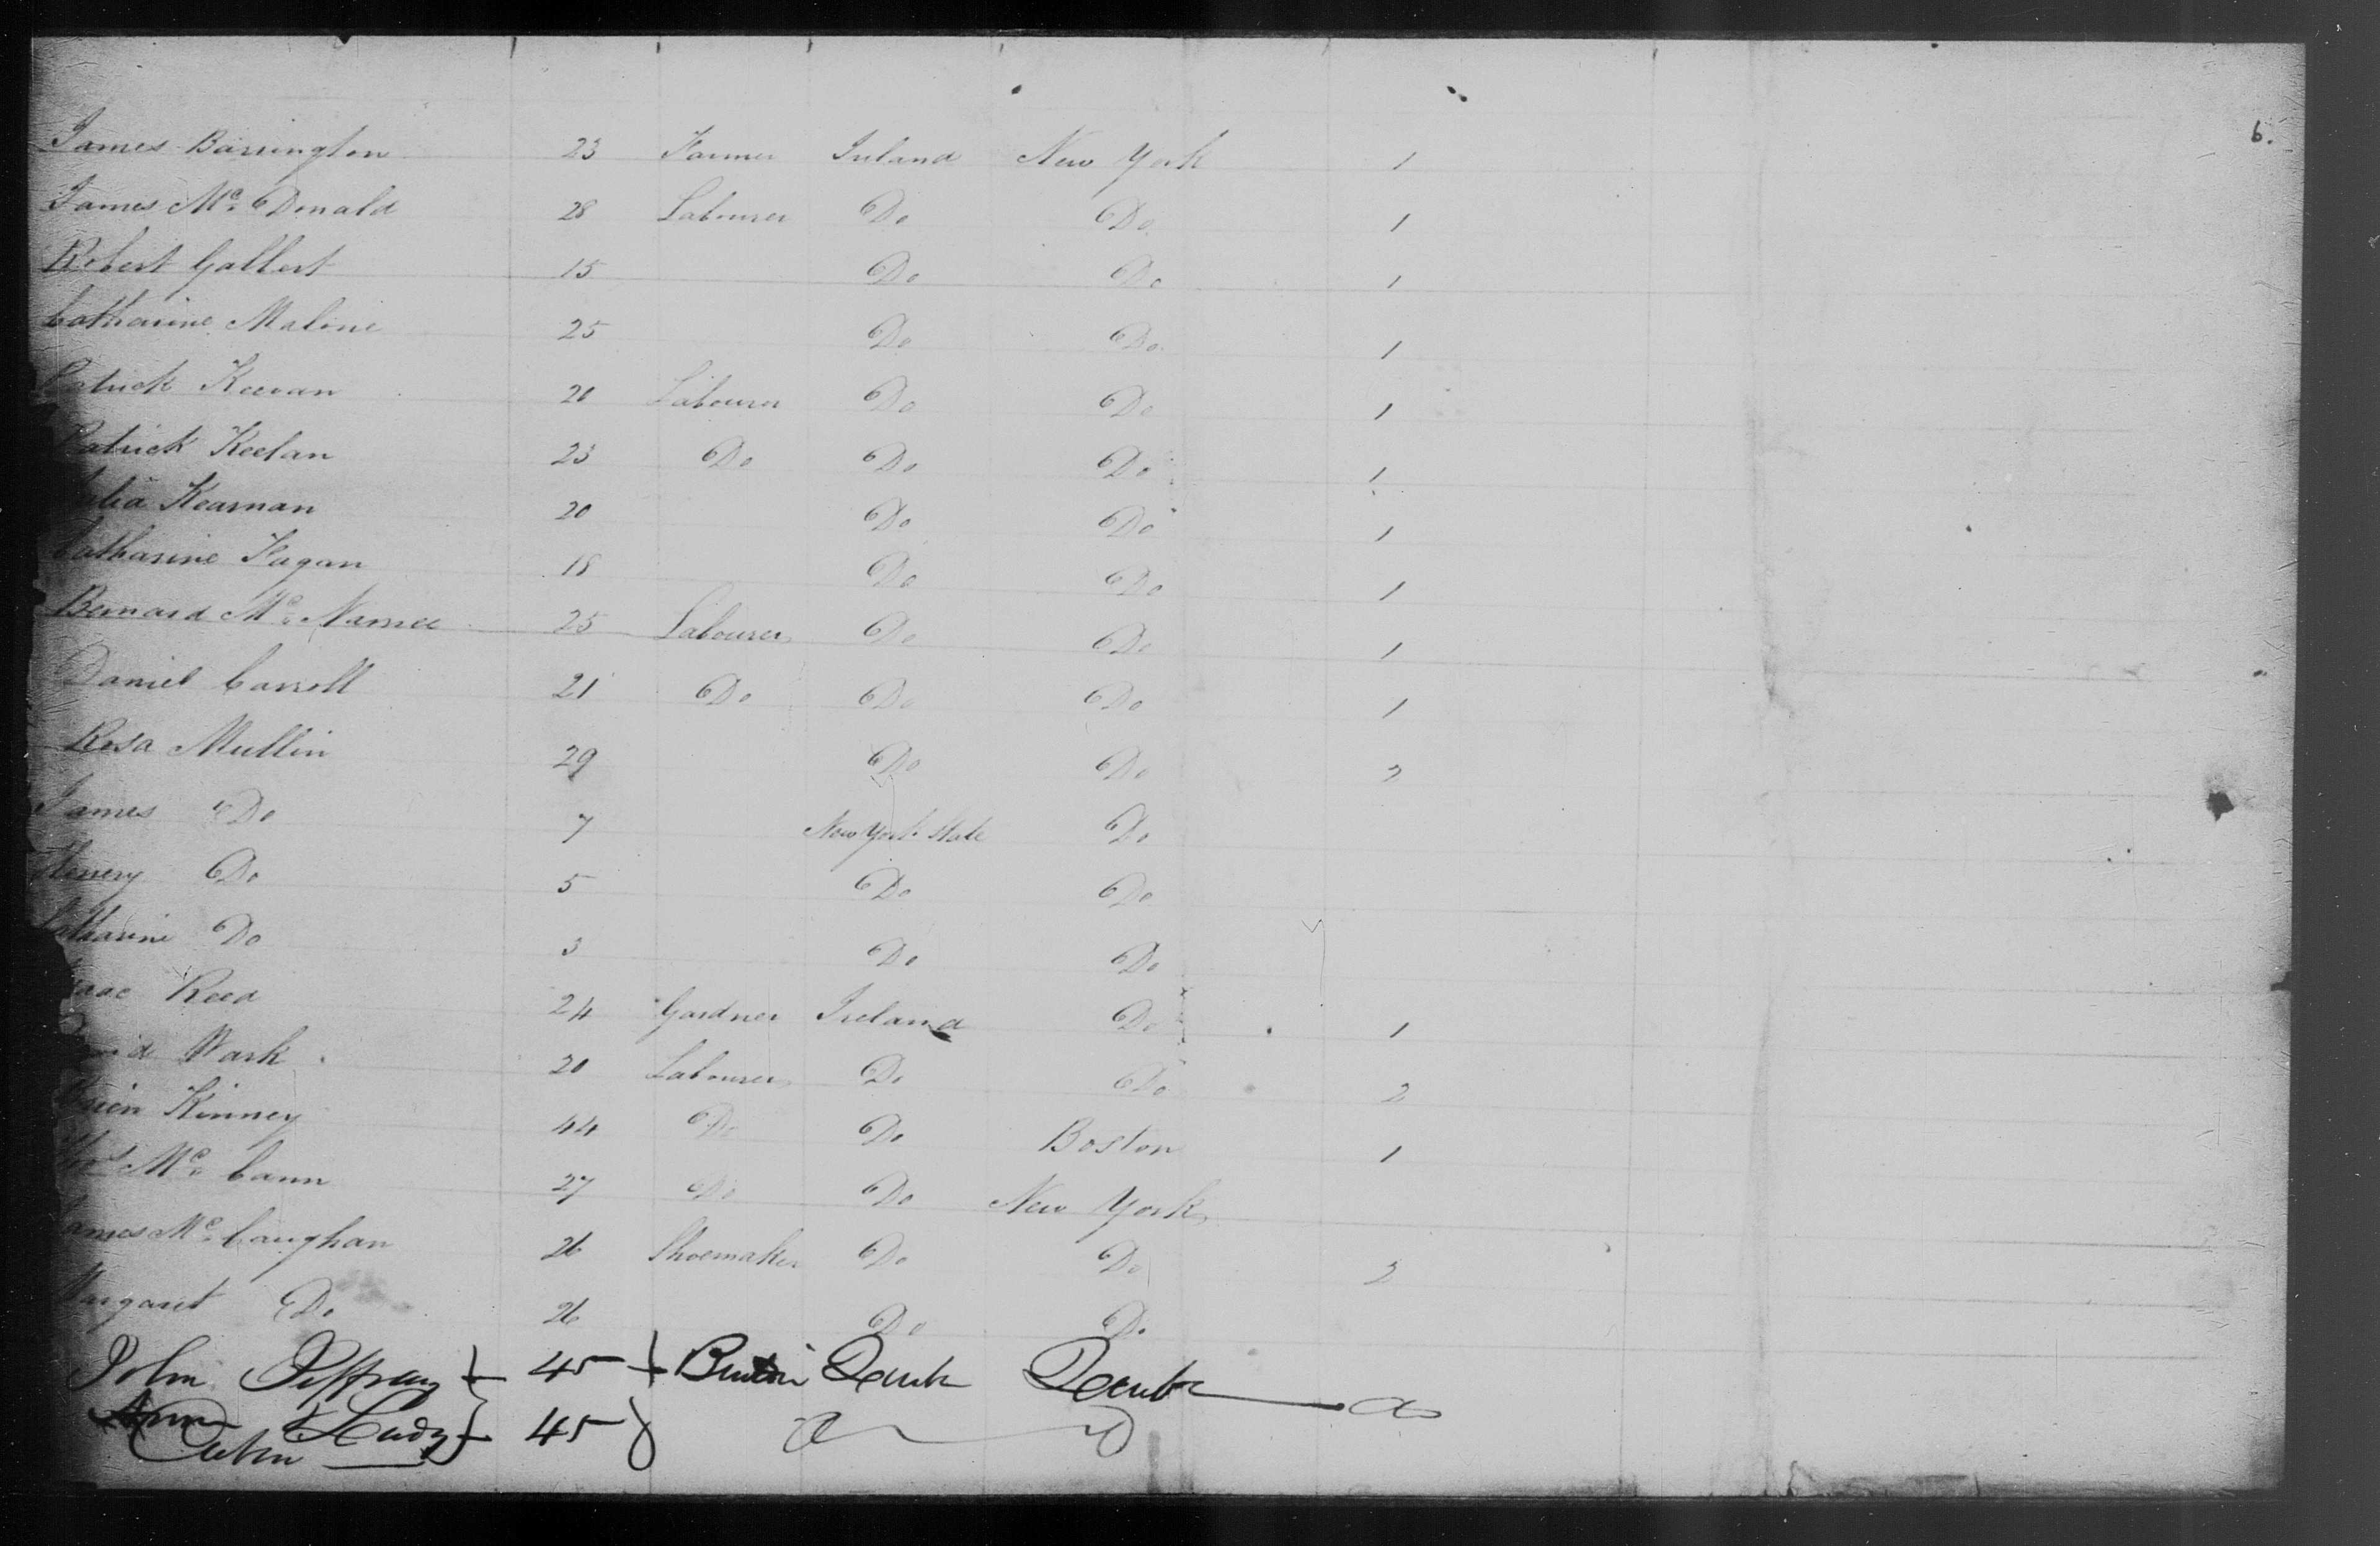 6.
James Barrington 23 Farmer Ireland New York 1
James Mc. Donald 28 Labourer Do Do 1
Robert Galbert 15 Do Do 1
Catharine Malone 25 Do Do 1
Patrick Keevan 20 Labourer Do Do 1
Patrick Keelan 23 Do Do Do 1
Julia Kearnan 20 Do Do 1
Catharine Fagan 18 Do Do 1
Bernard Mc. Namee 25 Labourer Do Do 1
Daniel Carroll 21 Do Do Do 1
Rosa Mullin 29 Do Do 2
James Do 7 New York State Do
Henery Do 5 Do Do
Catharine Do 3 Do Do
Isaac Reed 24 Gardner Ireland Do 1
David Wark 20 Labourer Do Do 2
Kinney 44 Do Do Boston 1
Mc. Cann 27 Do Do New York
James Mc. Caughan 26 Shoemaker Do Do 2
Margaret Do 26 Do Do
John 45
45